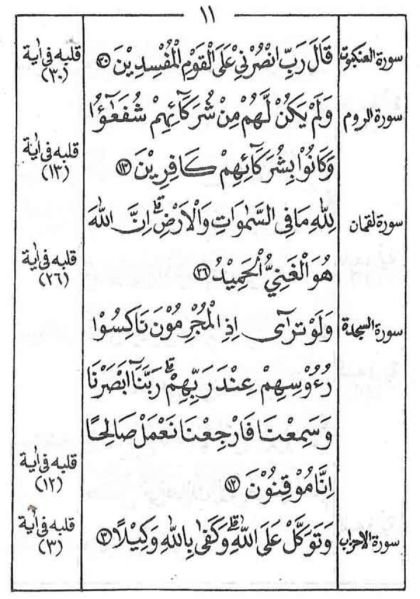 ١١
سورة العنكبوت قَالَ رَبِّ انْصُرْنِيْ عَلَى الْقَوْمِ الْمُفْسِدِيْنَ ﴿٣٠﴾ قلبه في اٰية (٣٠)
سورة الروم وَلَمْ يَكُنْ لَّهُمْ مِنْ شُرَكَآئِهِمْ شُفَعٰٓؤُا
وَكَانُوْا بِشُرَكَآئِهِمْ كَافِرِيْنَ ﴿١٣﴾ قلبه في اٰية (١٣)
سورة لقمان لِلّٰهِ مَا فِى السَّمٰوَاتِ وَالْاَرْضِ ۗ اِنَّ اللّٰهَ
هُوَ الْغَنِيُّ الْحَمِيْدُ ﴿٢٦﴾ قلبه في اٰية (٢٦)
سورة السجدة وَلَوْ تَرٰٓى اِذِ الْمُجْرِمُوْنَ نَاكِسُوْا
رُءُوْسِهِمْ عِنْدَ رَبِّهِمْ ۗ رَبَّنَآ اَبْصَرْنَا
وَسَمِعْنَا فَارْجِعْنَا نَعْمَلْ صَالِحًا
اِنَّا مُوْقِنُوْنَ ﴿١٢﴾ قلبه في اٰية (١٢)
سورة الاحزاب وَتَوَكَّلْ عَلَى اللّٰهِ ۗ وَكَفٰى بِاللّٰهِ وَكِيْلًا ﴿٣﴾ قلبه في اٰية (٣)